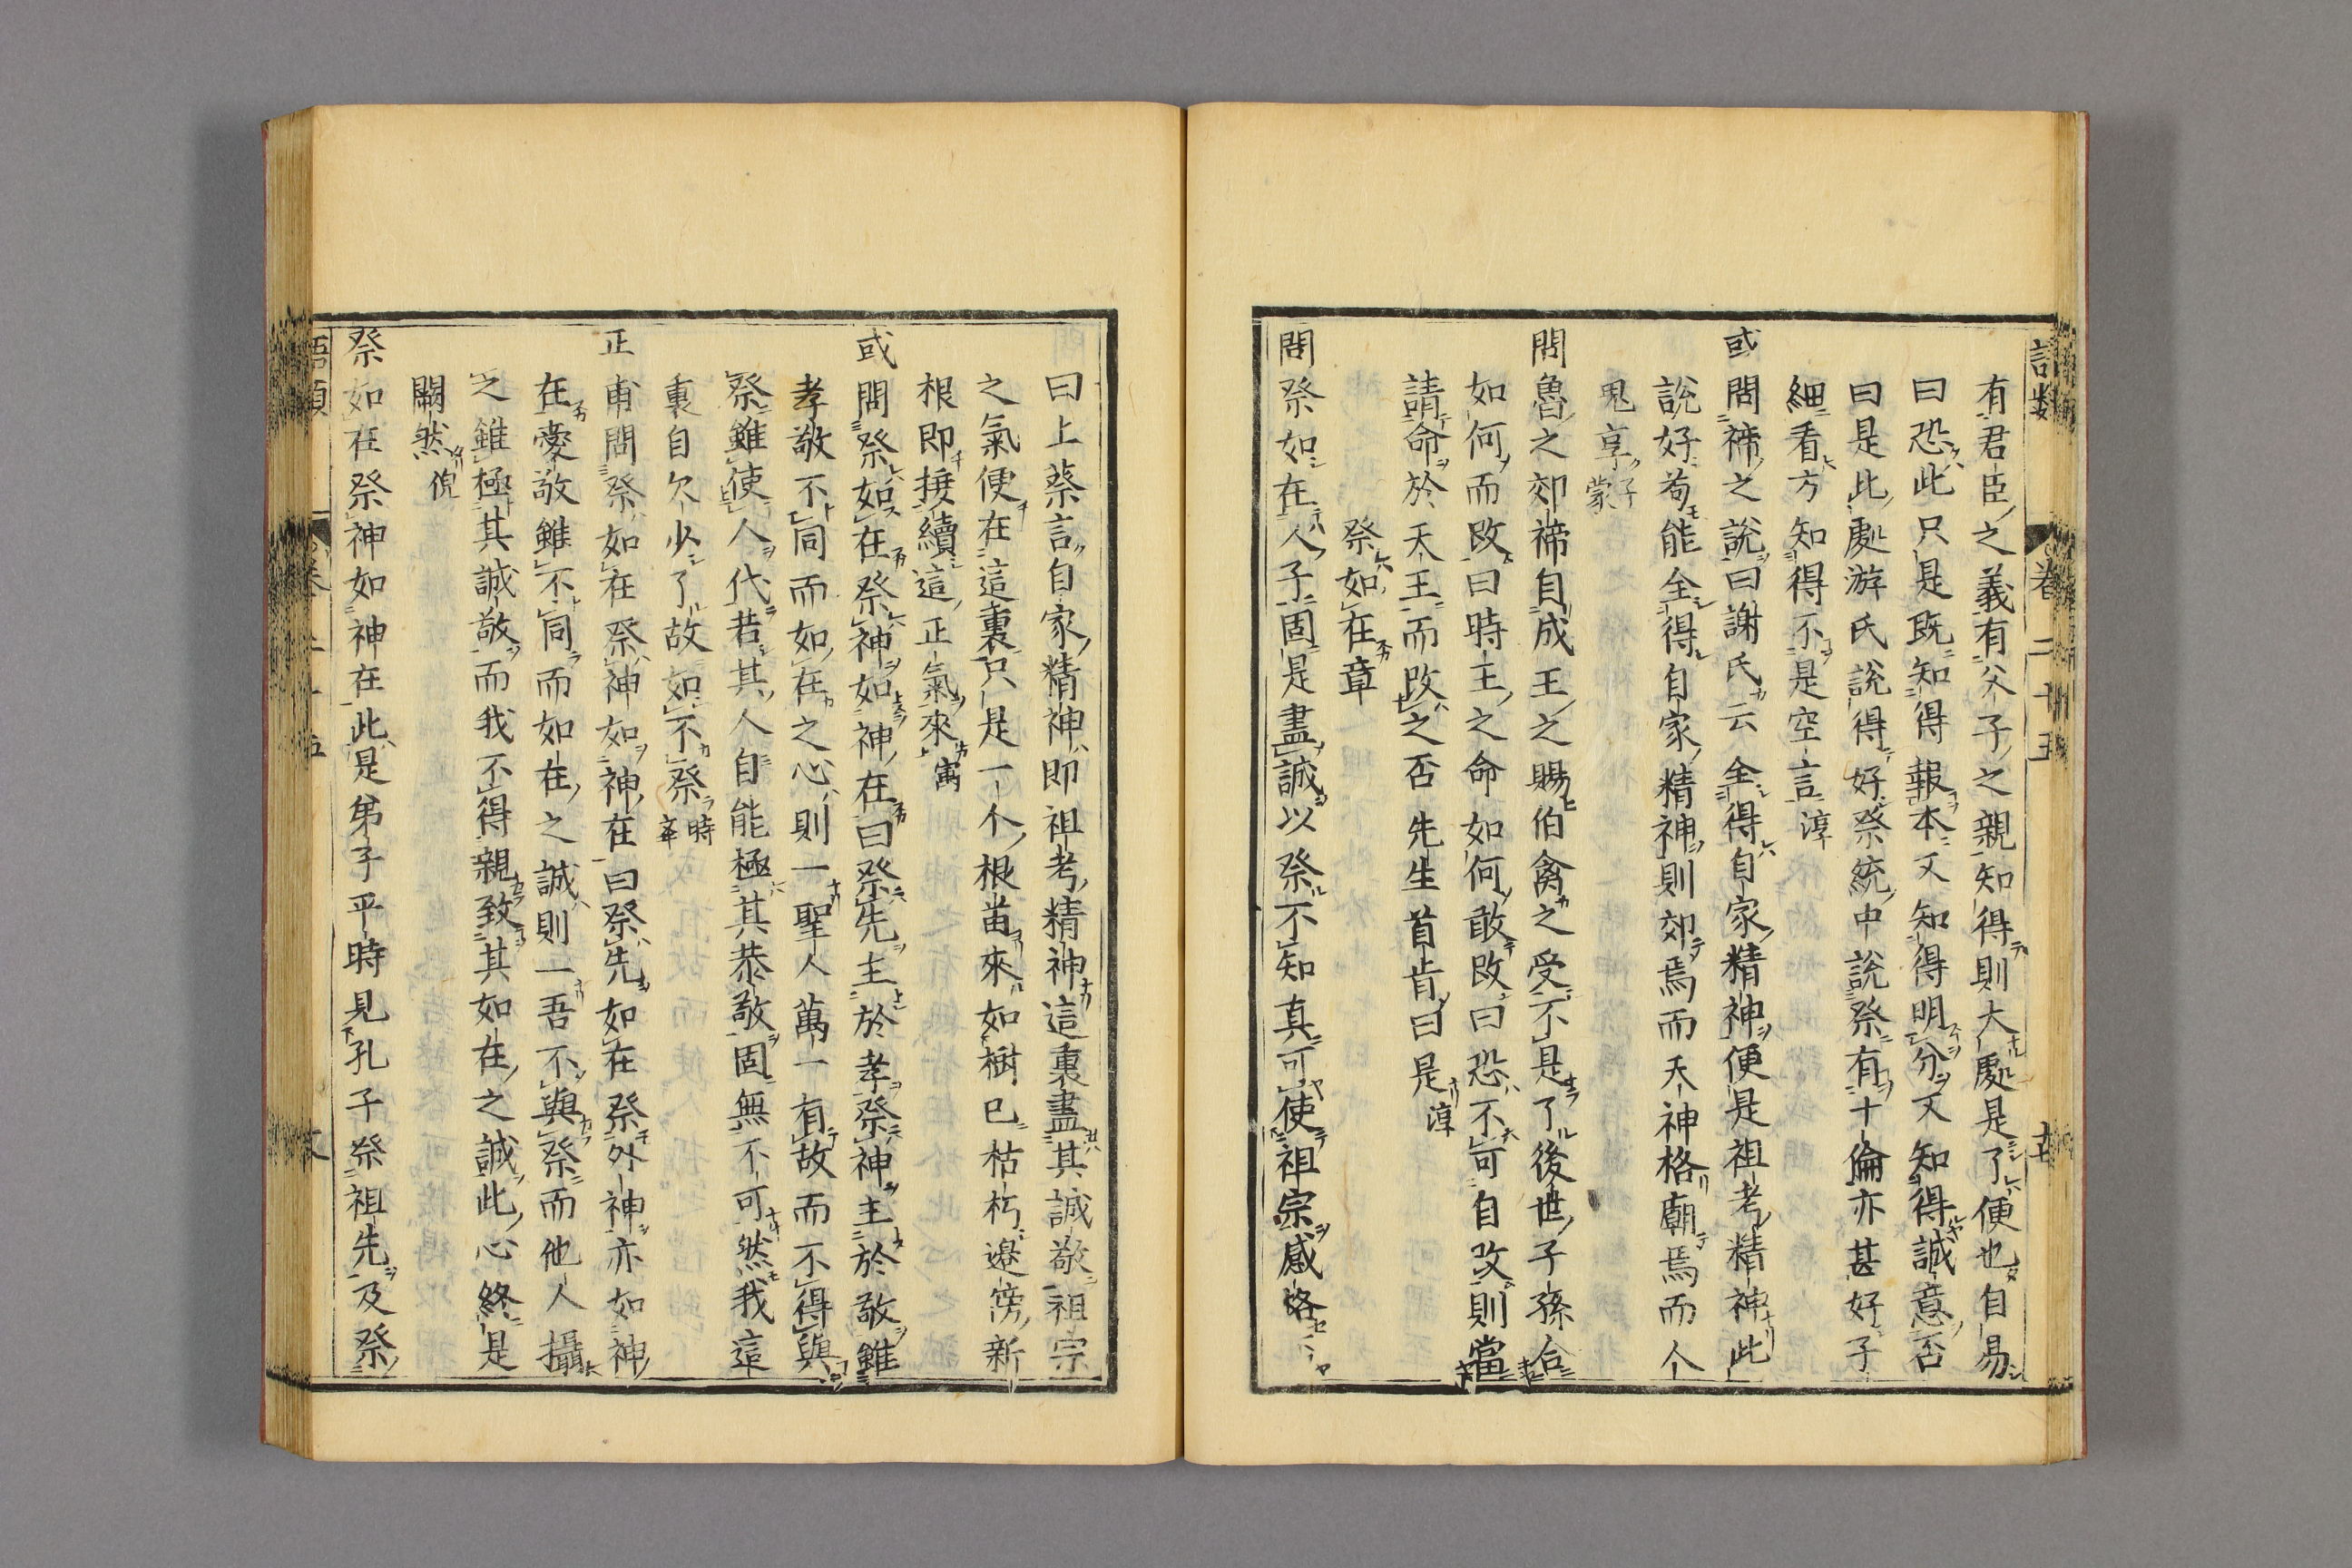 有君臣之義有父子之親知得則大處是了便也自易
曰恐此只是既知得報本又知得明分又知得誠意否
曰是此處游氏說得好祭統中說祭有十倫亦甚好子
細看方知得不是空言淳
或問禘之說曰謝氏云全得自家精神便是祖考精神此
說好苟能全得自家精神則郊焉而天神格廟焉而人
鬼享蒙子
問魯之郊禘自成王之賜伯禽之受不是了後世子孫合
如何而改曰時王之命如何敢改曰恐不可自改則當
請命於天王而改之否先生首肯曰是淳
祭如在章
問祭如在人子固是盡誠以祭不知真可使祖宗感格否
曰上蔡言自家精神即祖考精神這裏盡其誠敬祖宗
之氣便在這裏只是一个根苗來如樹已枯朽邊傍新
根即接續這正氣來㝢
或問祭如在祭神如神在曰祭先主於孝祭神主於敬雖
孝敬不同而如在之心則一聖人萬一有故而不得與
祭雖使人代若其人自能極其恭敬固無不可然我這
裏自欠少了故如不祭時舉
正甫問祭如在祭神如神在曰祭先如在祭外神亦如神
在愛敬雖不同而如在之誠則一吾不與祭而他人攝
之雖極其誠敬而我不得親致其如在之誠此心終是
闕然倪
祭如在祭神如神在此是弟子平時見孔子祭祖先及祭